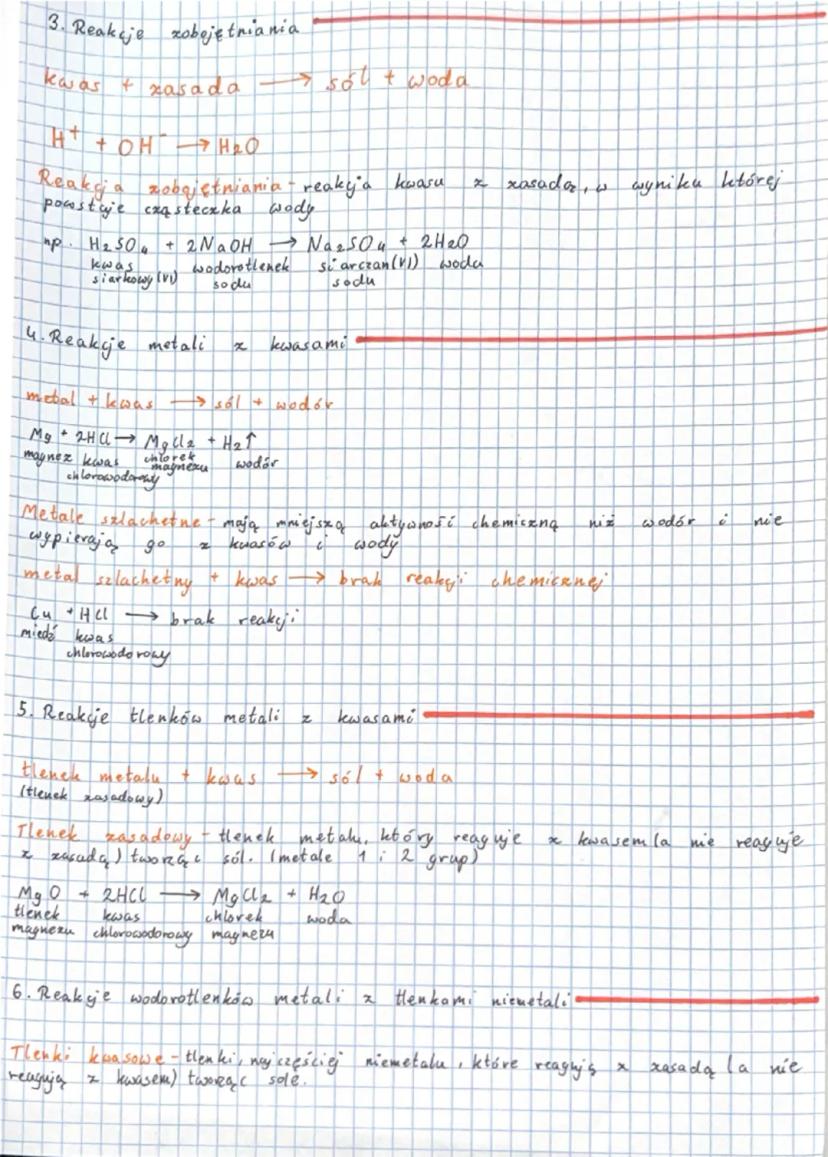 3. Reakcje zobojętniania
kwas + zasada → sól + woda
H⁺ + OH⁻ → H2O
Reakcja zobojętniania - reakcja kwasu z zasadą, w wyniku której
powstaje cząsteczka wody
np. H2SO4 + 2NaOH → Na2SO4 + 2H2O
kwas wodorotlenek siarczan(VI) woda
siarkowy(VI) sodu sodu
4. Reakcje metali z kwasami
metal + kwas → sól + wodór
Mg + 2HCl → MgCl2 + H2↑
magnez kwas chlorek magnezu wodór
chlorowodorowy
Metale szlachetne - mają mniejszą aktywność chemiczną niż wodór i nie
wypierają go z kwasów i wody
metal szlachetny + kwas → brak reakcji chemicznej
Cu + HCl → brak reakcji
miedź kwas
chlorowodorowy
5. Reakcje tlenków metali z kwasami
tlenek metalu + kwas → sól + woda
(tlenek zasadowy)
Tlenek zasadowy - tlenek metalu, który reaguje z kwasem (a nie reaguje
z zasadą) tworząc sól. (metale 1 i 2 grup)
MgO + 2HCl → MgCl2 + H2O
tlenek kwas chlorek woda
magnezu chlorowodorowy magnezu
6. Reakcje wodorotlenków metali z tlenkami niemetali
Tlenki kwasowe - tlenki, najczęściej niemetalu, które reagują z zasadą (a nie
reagują z kwasem) tworząc sole.